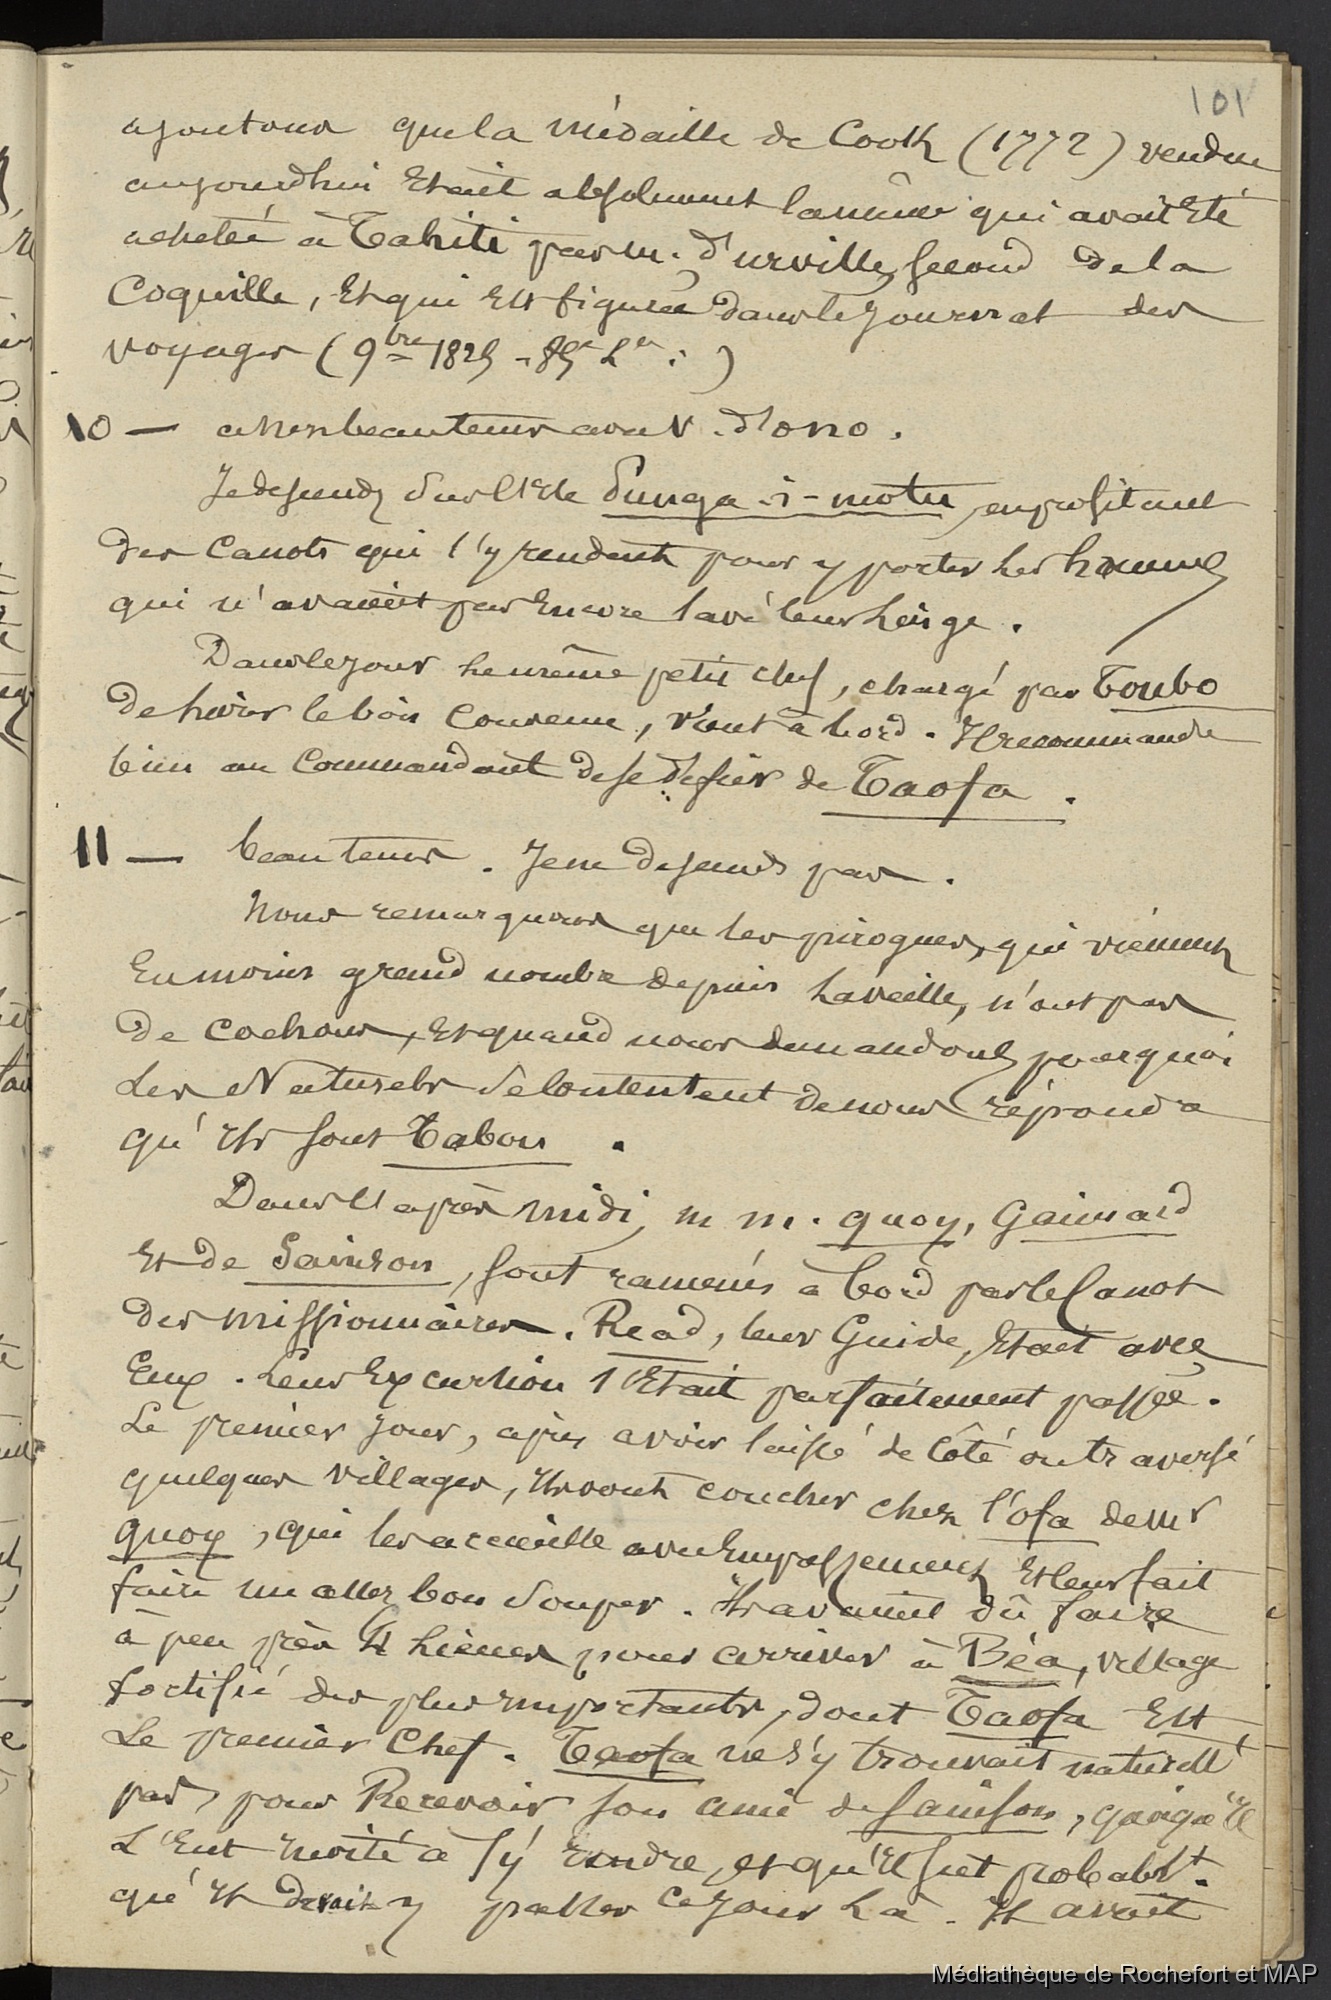 101
ajoutons que la médaille de Cook (1772) vendue
aujourdhui Etait absolument la même qui avait Eté
achetée à Tahiti par m. d'urville, second de la
Coquille, Et qui Est figurée dans le journal des
voyages (9bre 1825 - 85e L
10 — assez beau tems avant. d'ono.
Je descends sur l'Ile Punga-i-motu, en profitant
des Canots qui s'y rendent pour y porter les hommes
qui n'avaient pas Encore lavé leur linge.
Dans le jour le même petit chef, chargé par Toubo
de livrer le bois convenu, vient à bord. Il recommande
bien au Commandant de se défier de Taofa.
11 — beau tems. Je ne descends pas.
Nous remarquons que les pirogues, qui viennent
En moins grand nombre depuis la veille, n'ont pas
de cochons, Et quand nous demandons pourquoi
Les Naturels se Contentent de nous répondre
qu'Ils sont Tabou.
Dans l'après midi, m m. quoy, Gaimard
Et de Sainson, sont ramenés à bord par le Canot
des missionnaires. Read, leur Guide, Etait avec
Eux. Leur Excursion s'Etait parfaitement passée.
Le premier jour, après avoir laissé de côté ou traversé
quelques villages, Ils vont coucher chez l'ofa de mr
quoy, qui les accueille avec Empressement Et leur fait
faire un assez bon souper. Ils avaient dû faire
à peu près 4 lieues pour arriver à Béa, village
fortifié des plus importants, dont Taofa Est
Le premier Chef. Taofa ne s'y trouvait naturellt
pas, pour Recevoir son ami de Sainson, quoiqu'Il
L'Eut invité à s'y rendre, et qu'Il fut probablt.
qu'Il devait y passer ce jour Là. Il avait
Médiathèque de Rochefort et MAP